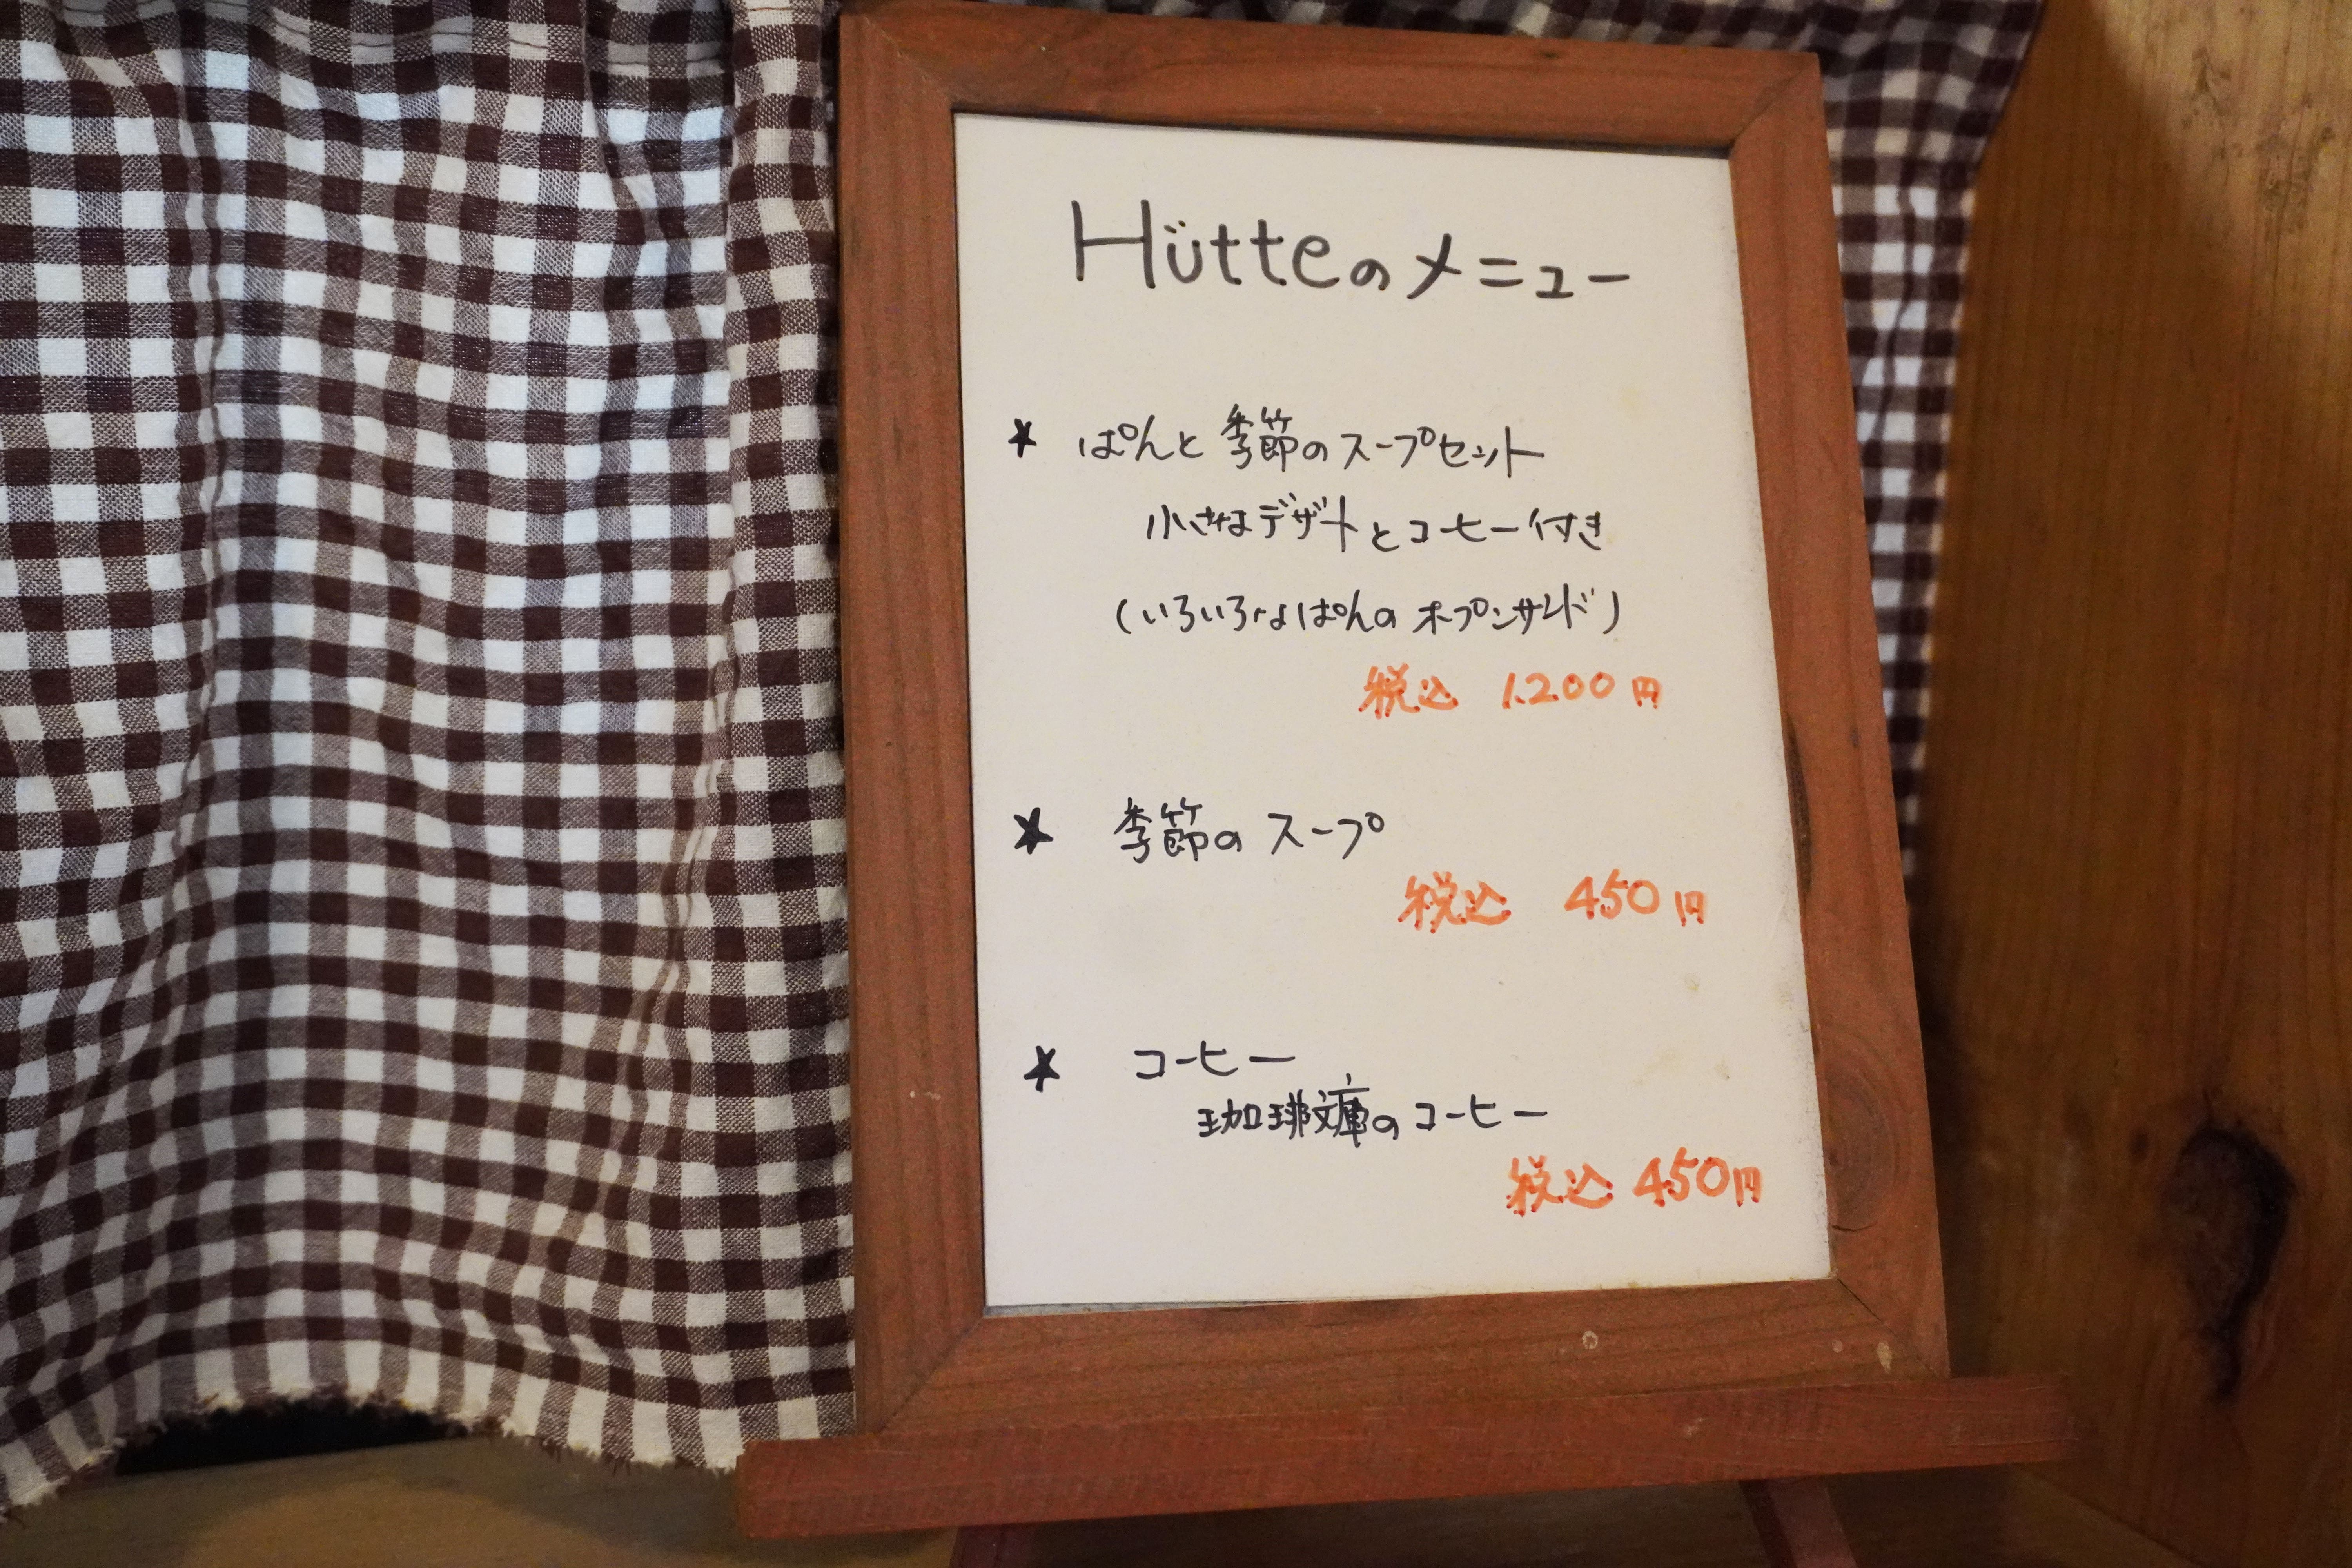 Hütteのメニュー
★ ぱんと季節のスープセット
小さなデザートとコーヒー付き
(いろいろなぱんのオープンサンド)
税込 1.200円
★ 季節のスープ
税込 450円
★ コーヒー
珈琲文庫のコーヒー
税込 450円